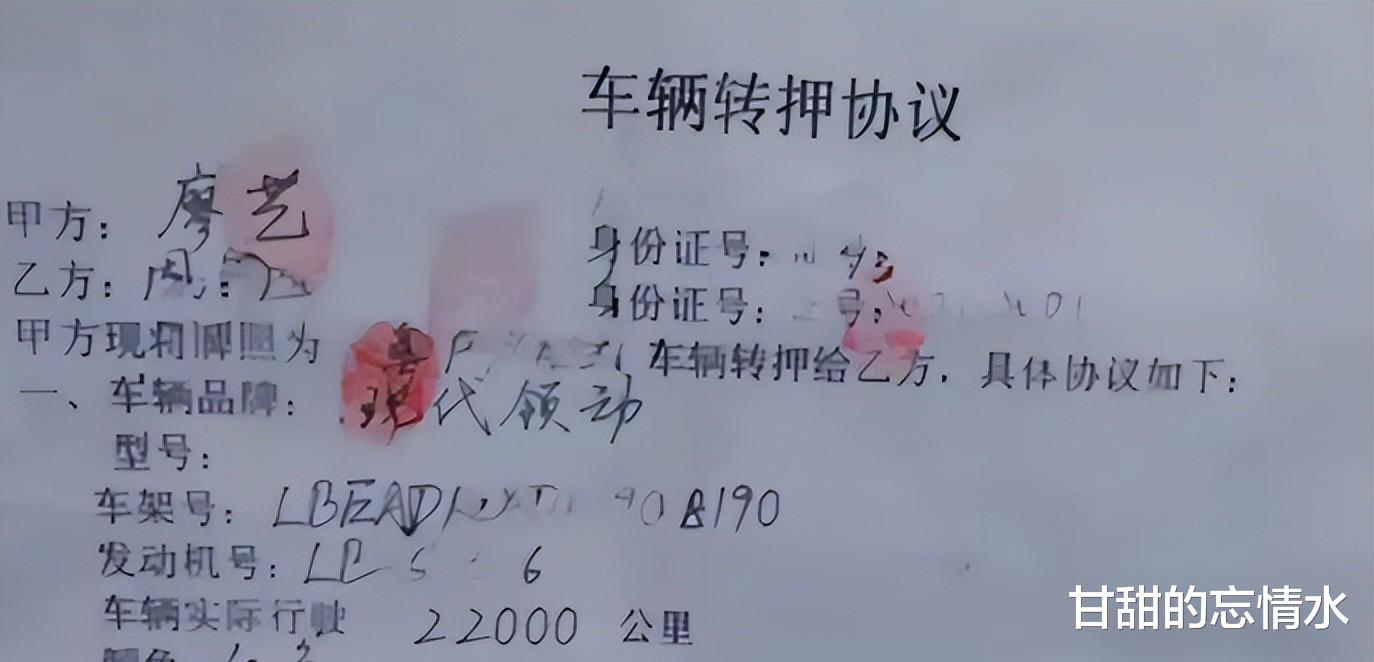 车辆转押协议
甲方：廖艺 身份证号：
乙方：周 身份证号： 01
甲方现将牌照为 粤 车辆转押给乙方，具体协议如下：
一、车辆品牌：现代领动
型号：
车架号：LBEAD 908190
发动机号：LB 6
车辆实际行驶 22000 公里
颜色
甘甜的忘情水